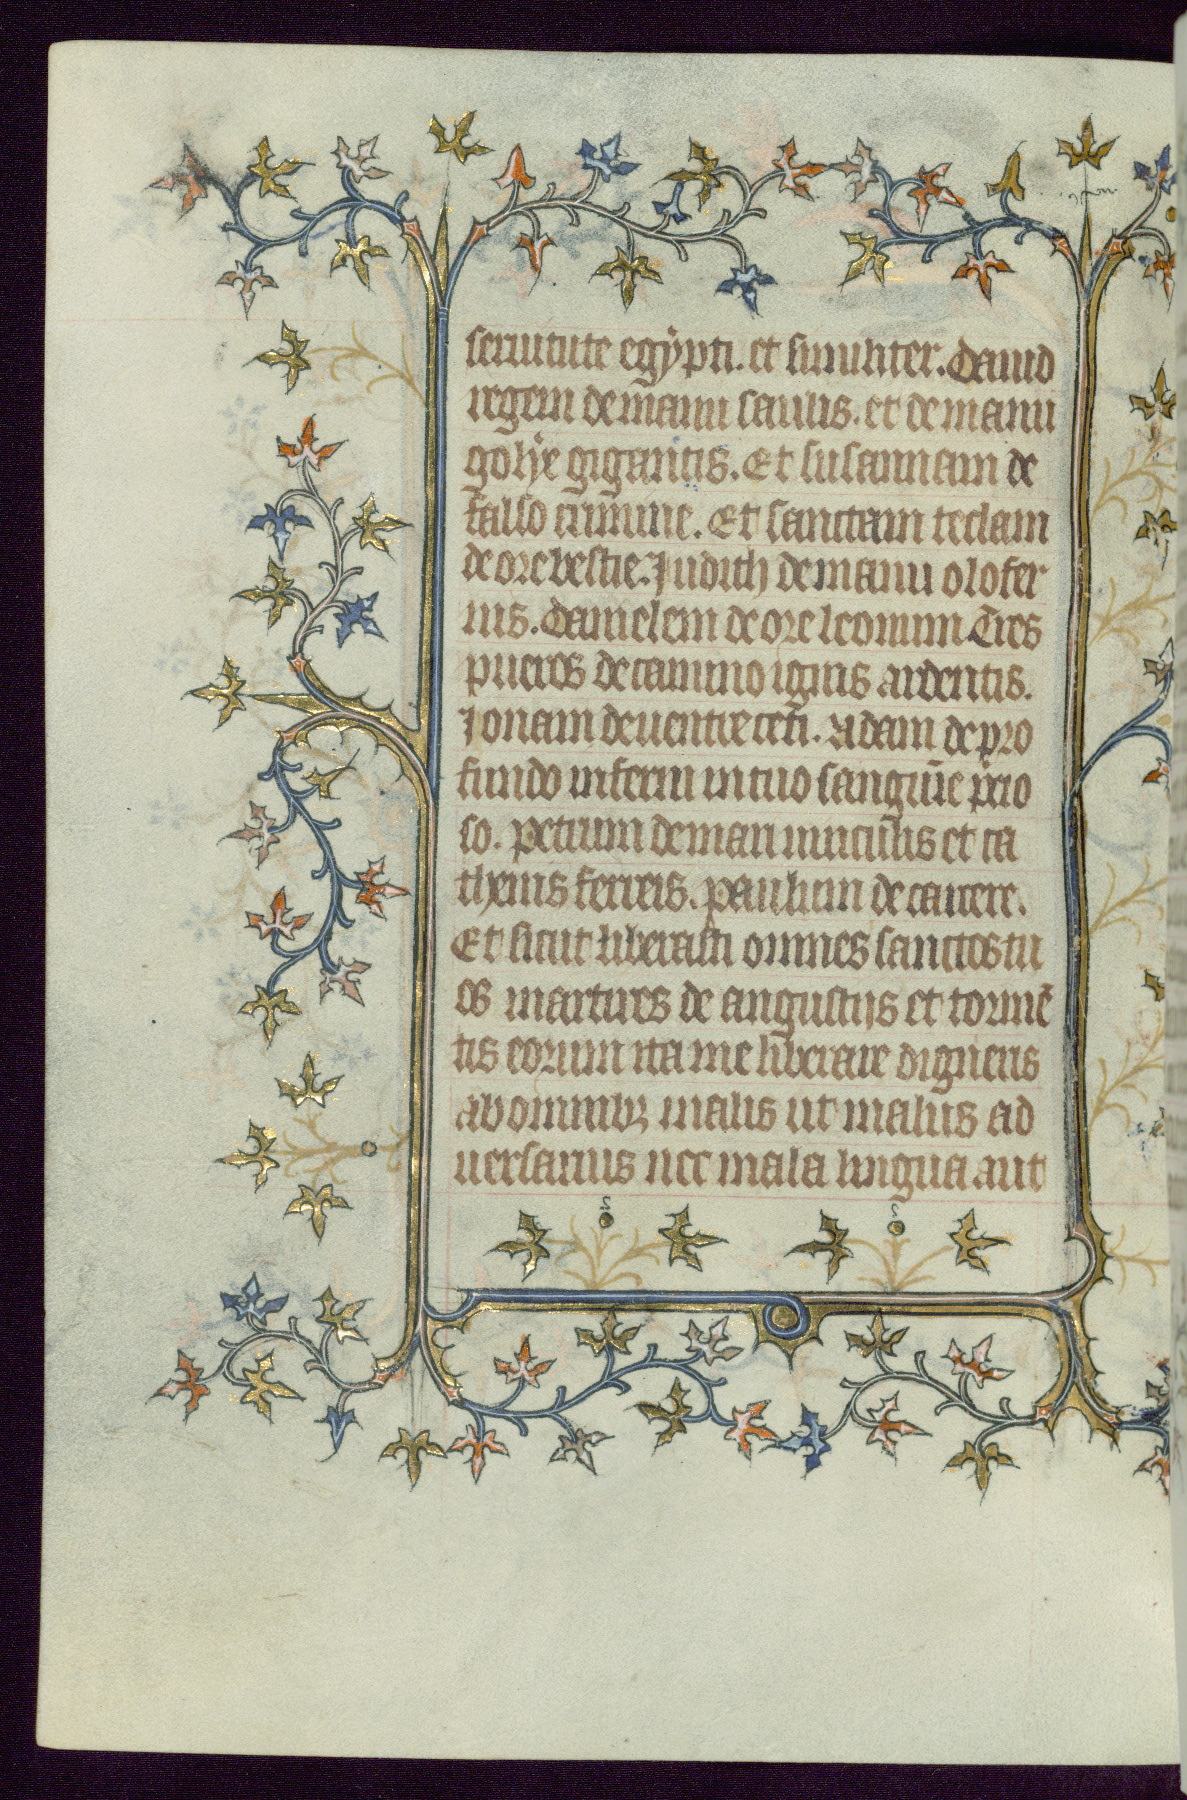 seruitute egypti. et similiter. Dauid
regem de manu saulis. et de manu
golye gigantis. Et susannam de
falso crimine. Et sanctam teclam
de ore bestie. Judith de manu olofer
nis. Danielem de ore leonum. Tres
pueros de camino ignis ardentis.
Jonam de uentre ceti. Adam de pro
fundo inferni in tuo sanguīe p̄cio
so. petrum de man uinculis et ca
thenis ferreis. paulum de carcere.
Et sicut liberasti omnes sanctos tu
os martires de angustijs et tormē
tis eorum ita me liberare digneris
ab omnibꝫ malis ut malus ad
uersarius nec mala lingua aut